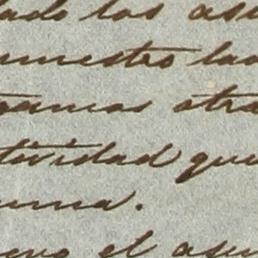 lado los asu
umestro las
tamos otra
tividad que
uma.
uevo el asun